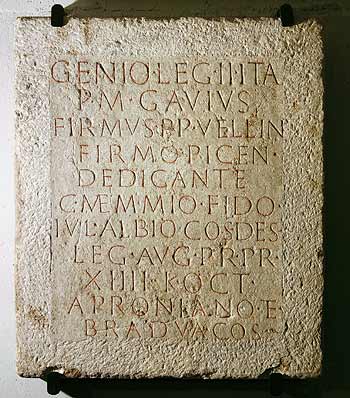 GENIO·LEG·III·ITA
P·M·GAVIVS
FIRMVS·P·P·VELLIN
FIRMO·PICEN·
DEDICANTE
C·MEMMIO·FIDO
IVL·ALBIO·COS·DES
LEG·AVG·PR·PR·
XIIII·K·OCT·
APRONIANO·E·
BRADVA·COS·